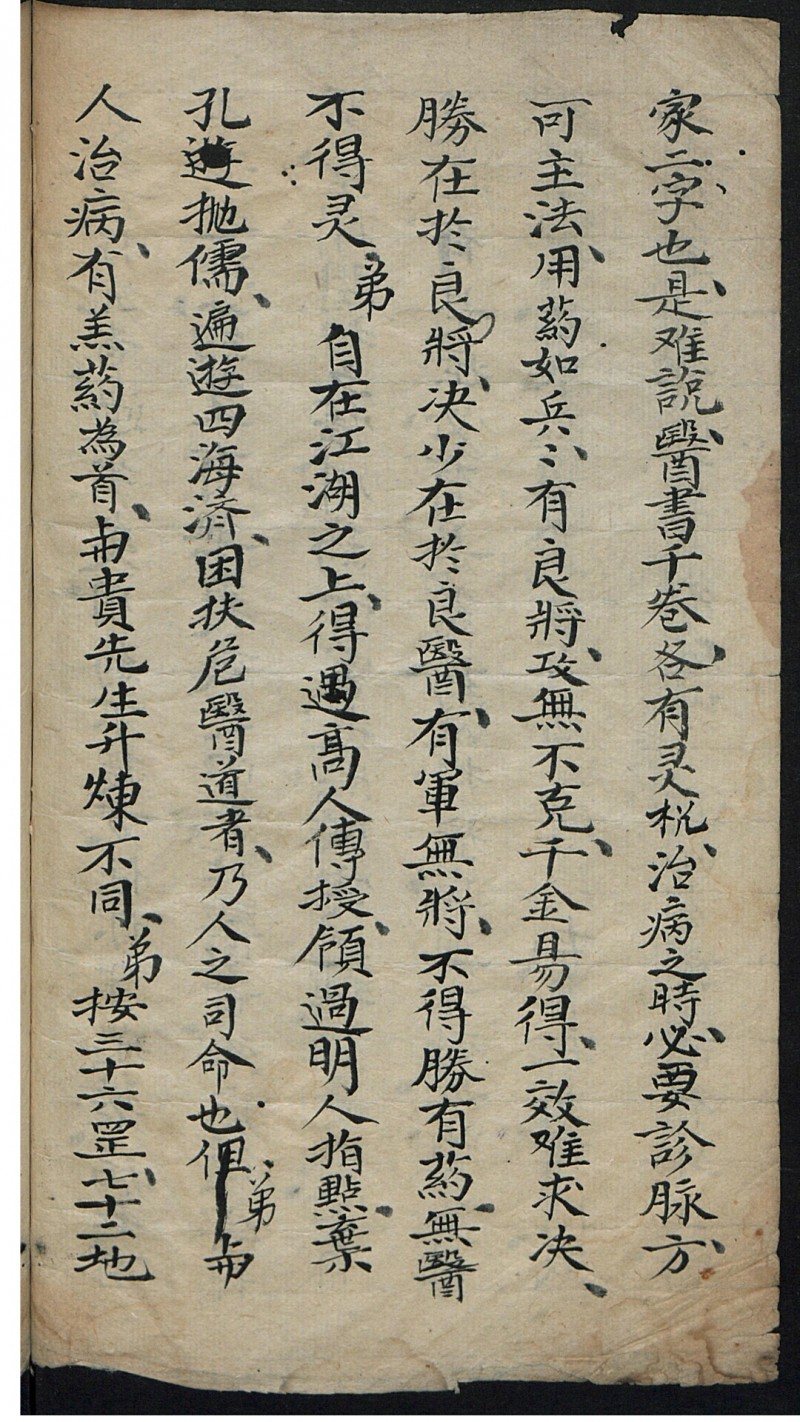 家二字也是难說、醫書千卷、各有灵机、治病之時、必要診脉、方、
可主法、用葯如兵〻、有良將、攻無不克、千金易得、一效难求、决、
勝在於良將、决少在於良醫、有軍無將、不得勝有葯、無醫
不得灵、弟自在江湖之上、得遇高人傳授、領過明人指點、棄
孔遊抛儒、遍遊四海、済困扶危醫道者、乃人之司命也但弟与
人治病、有羔葯為首、与貴先生升煉不同、弟按三十六罡、七十二地